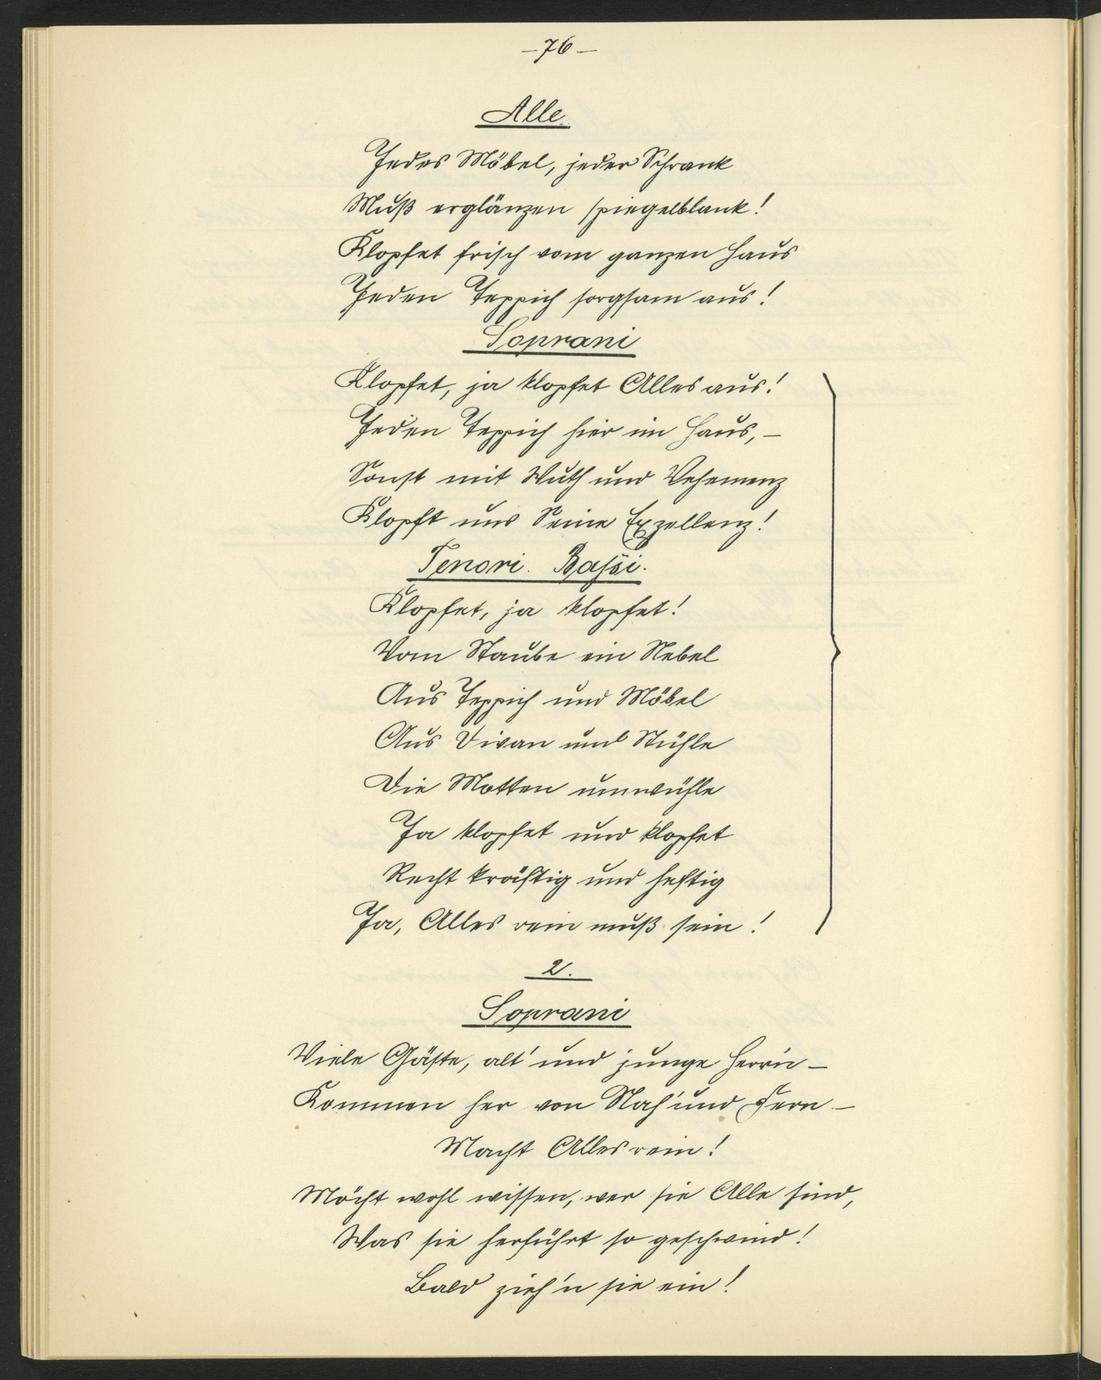 -76-
Alle.
Jedes Möbel, jeder Schrank
Muß erglänzen spiegelblank!
Klopfet frisch vom ganzen Haus
Jeden Teppich sorgsam aus!
Soprani
Klopfet, ja klopfet Alles aus!
Jeden Teppich hier im Haus, –
Sonst mit Wuth und Vehemenz
Klopft uns Seine Exzellenz!
Tenori. Bassi.
Klopfet, ja klopfet!
Vom Staube ein Nebel
Aus Teppich und Möbel
Aus Divan und Stühle
Die Motten umwühle
Ja klopfet und klopfet
Recht kräftig und heftig
Ja, Alles rein muß sein!
2.
Soprani
Viele Gäste, alt' und junge Herrn –
Kommen her von Nah' und Fern –
Macht Alles rein!
Möcht wohl wissen, wer sie Alle sind,
Was sie herführt so geschwind!
Bald zieh'n sie ein!